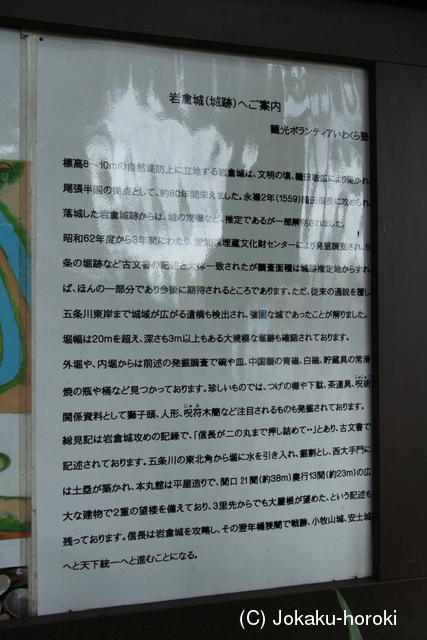 岩倉城(城跡)へご案内
観光ボランティアいわくら塾
標高8～10mの自然堤防上に立地する岩倉城は、文明の頃、織田敏広により築かれ
尾張半国の拠点として、約80年間栄えました。永禄2年(1559)織田信長に攻められ
落城した岩倉城跡からは、城の規模など、推定であるが一部解明されました。
昭和62年度から3年間にわたり、愛知県埋蔵文化財センターにより発掘調査され、6
条の堀跡など古文書の記述と大体一致されたが調査面積は城跡推定地からすれ
ば、ほんの一部分であり今後に期待されるところであります。ただ、従来の通説を覆し
五条川東岸まで城域が広がる遺構も検出され、強固な城であったことが解りました。
堀幅は20mを超え、深さも3m以上もある大規模な堀跡も確認されております。
外堀や、内堀からは前述の発掘調査で碗や皿、中国製の青磁、白磁、貯蔵具の常滑
焼の瓶や桶など見つかっております。珍しいものでは、つげの櫛や下駄、茶道具、呪術
関係資料として獅子頭、人形、呪符木簡など注目されるものも発掘されております。
総見記は岩倉城攻めの記録で、「信長が二の丸まで押し詰めて・・」とあり、古文書で
記述されております。五条川の東北角から堀に水を引き入れ、掘割とし、西大手門に
は土塁が築かれ、本丸館は平屋造りで、間口21間(約38m)奥行13間(約23m)の広
大な建物で2重の望楼を備えており、3里先からでも大屋根が望めた、という記述も
残っております。信長は岩倉城を攻略し、その翌年桶狭間で戦勝、小牧山城、安土城
へと天下統一へと進むことになる。
(C) Jokaku-horoki